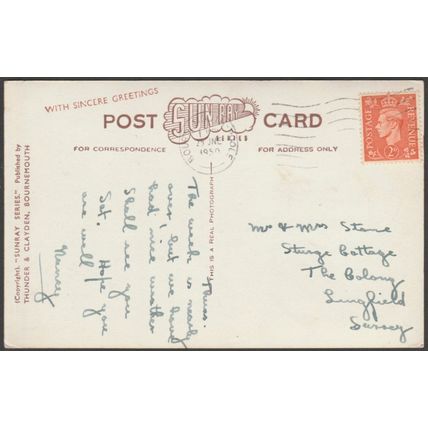 WITH SINCERE GREETINGS
POST
SUNRAY
SERIES
CARD
FOR CORRESPONDENCE
FOR ADDRESS ONLY
POSTAGE
REVENUE
2D
1950
POOLE
(Copyright). "SUNRAY SERIES." Published by
THUNDER & CLAYDEN, BOURNEMOUTH
THIS IS A REAL PHOTOGRAPH
Thurs.
The week is nearly
over, but we have
had nice weather
Shall see you
Sat. Hope you
are well
Nancy
Mr & Mrs Stone
Sturge Cottage
The Colony
Lingfield
Surrey